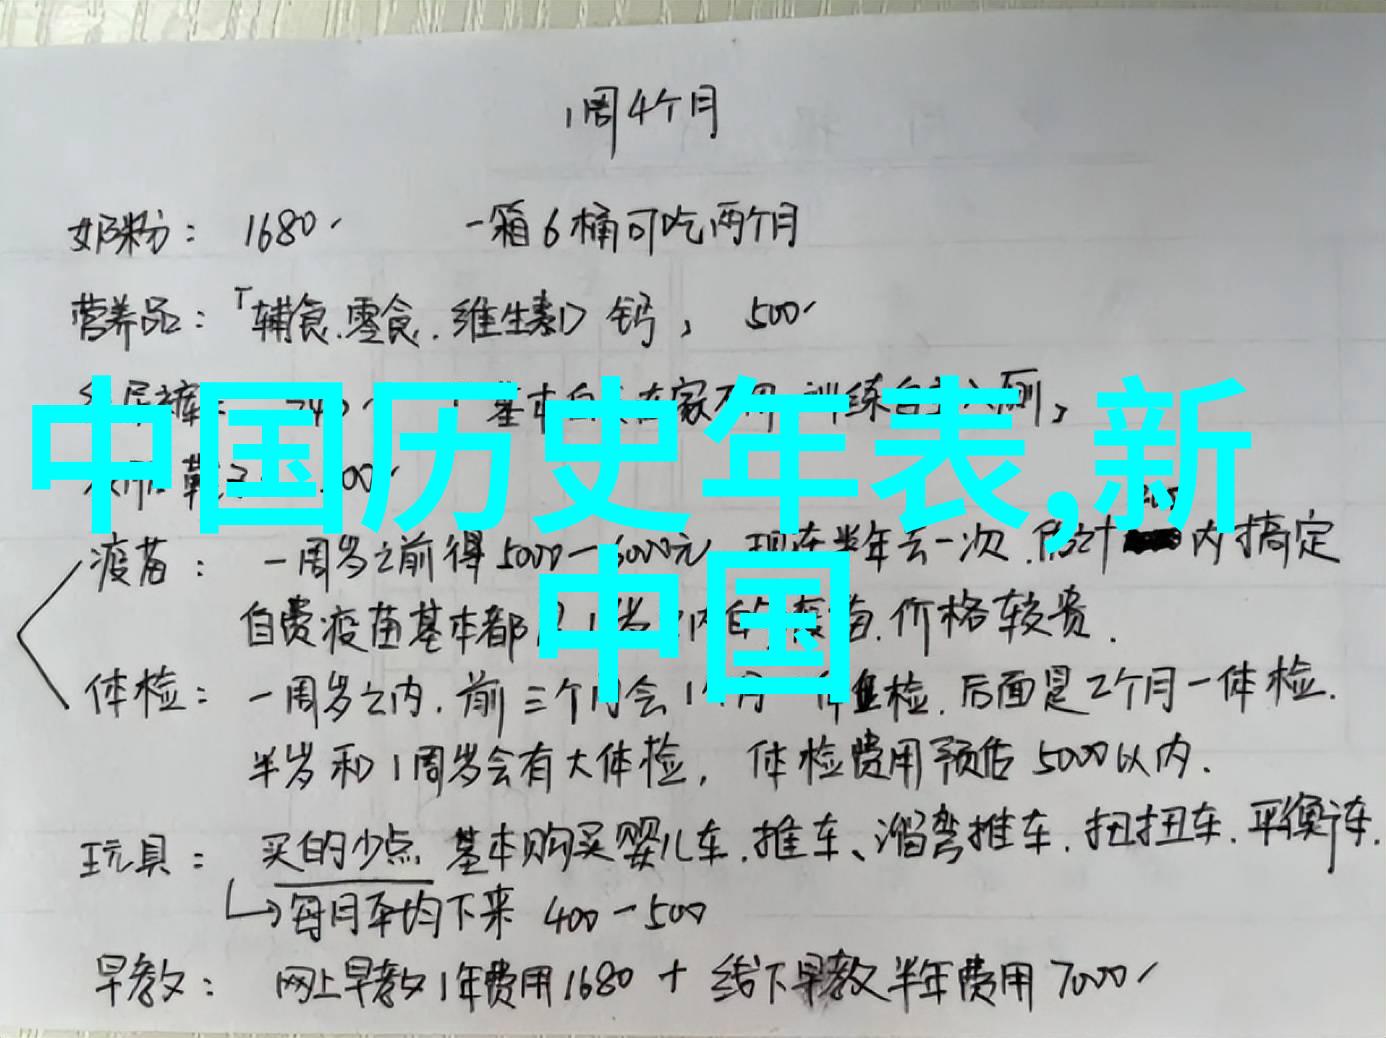 1周4个月
奶粉： 1680 一箱6桶可吃两个月
营养品：「辅食.零食.维生素D 钙, 500
裤： 基本 家不用 训练自 厕,
中国历史年表,新
中国
鞋子
疫苗： 一周岁之前得5000-6000元 现在半年去一次. 估计 内搞定
自费疫苗基本都 疫苗.价格较贵.
体检： 一周岁之内.前三个月会1个月一体检.后面是2个月一体检.
半岁和1周岁会有大体检, 体检费用预估5000以内.
玩具： 买的少点 基本购买婴儿车.推车、溜弯推车.扭扭车.平衡车.
↳每月平均下来 400-500
早教： 网上早教1年费用1680 + 线下早教半年费用7000